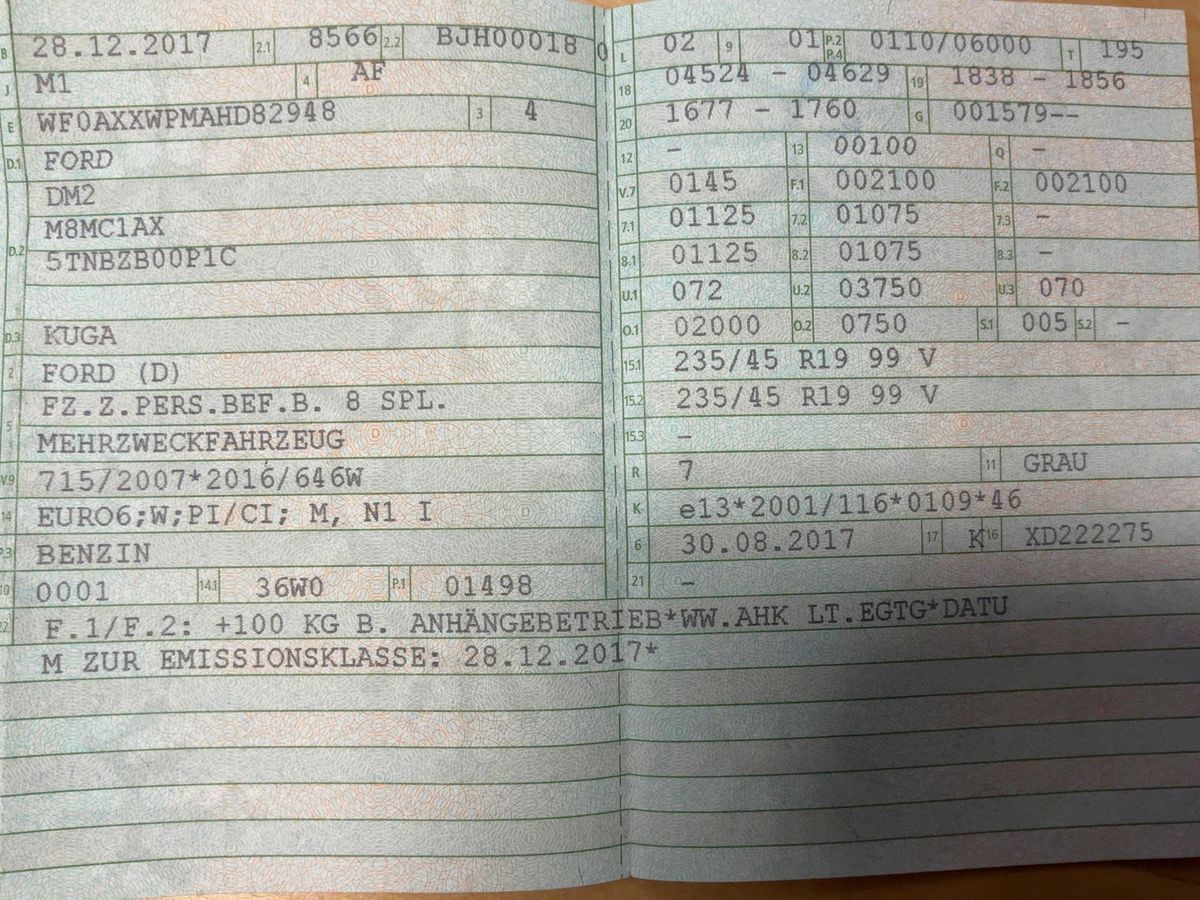 B 28.12.2017 2.1 8566 2.2 BJH00018 0
J M1 4 AF
E WF0AXXWPMAHD82948 3 4
D.1 FORD
DM2
M8MC1AX
D.2 5TNBZB00P1C
D.3 KUGA
2 FORD (D)
FZ.Z.PERS.BEF.B. 8 SPL.
5 MEHRZWECKFAHRZEUG
V.9 715/2007*2016/646W
14 EURO6;W;PI/CI; M, N1 I
P.3 BENZIN
10 0001 14.1 36W0 P.1 01498
L 02 9 01 P.2 P.4 0110/06000 T 195
18 04524 - 04629 19 1838 - 1856
20 1677 - 1760 G 001579--
12 - 13 00100 Q -
V.7 0145 F.1 002100 F.2 002100
7.1 01125 7.2 01075 7.3 -
8.1 01125 8.2 01075 8.3 -
U.1 072 U.2 03750 U.3 070
O.1 02000 O.2 0750 S.1 005 S.2 -
15.1 235/45 R19 99 V
15.2 235/45 R19 99 V
15.3 -
R 7 11 GRAU
K e13*2001/116*0109*46
6 30.08.2017 17 K 16 XD222275
21 -
22 F.1/F.2: +100 KG B. ANHÄNGEBETRIEB*WW.AHK LT.EGTG*DATU
M ZUR EMISSIONSKLASSE: 28.12.2017*